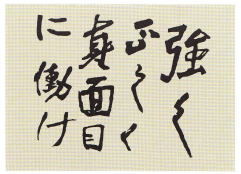 強く
正しく
真面目
に働け